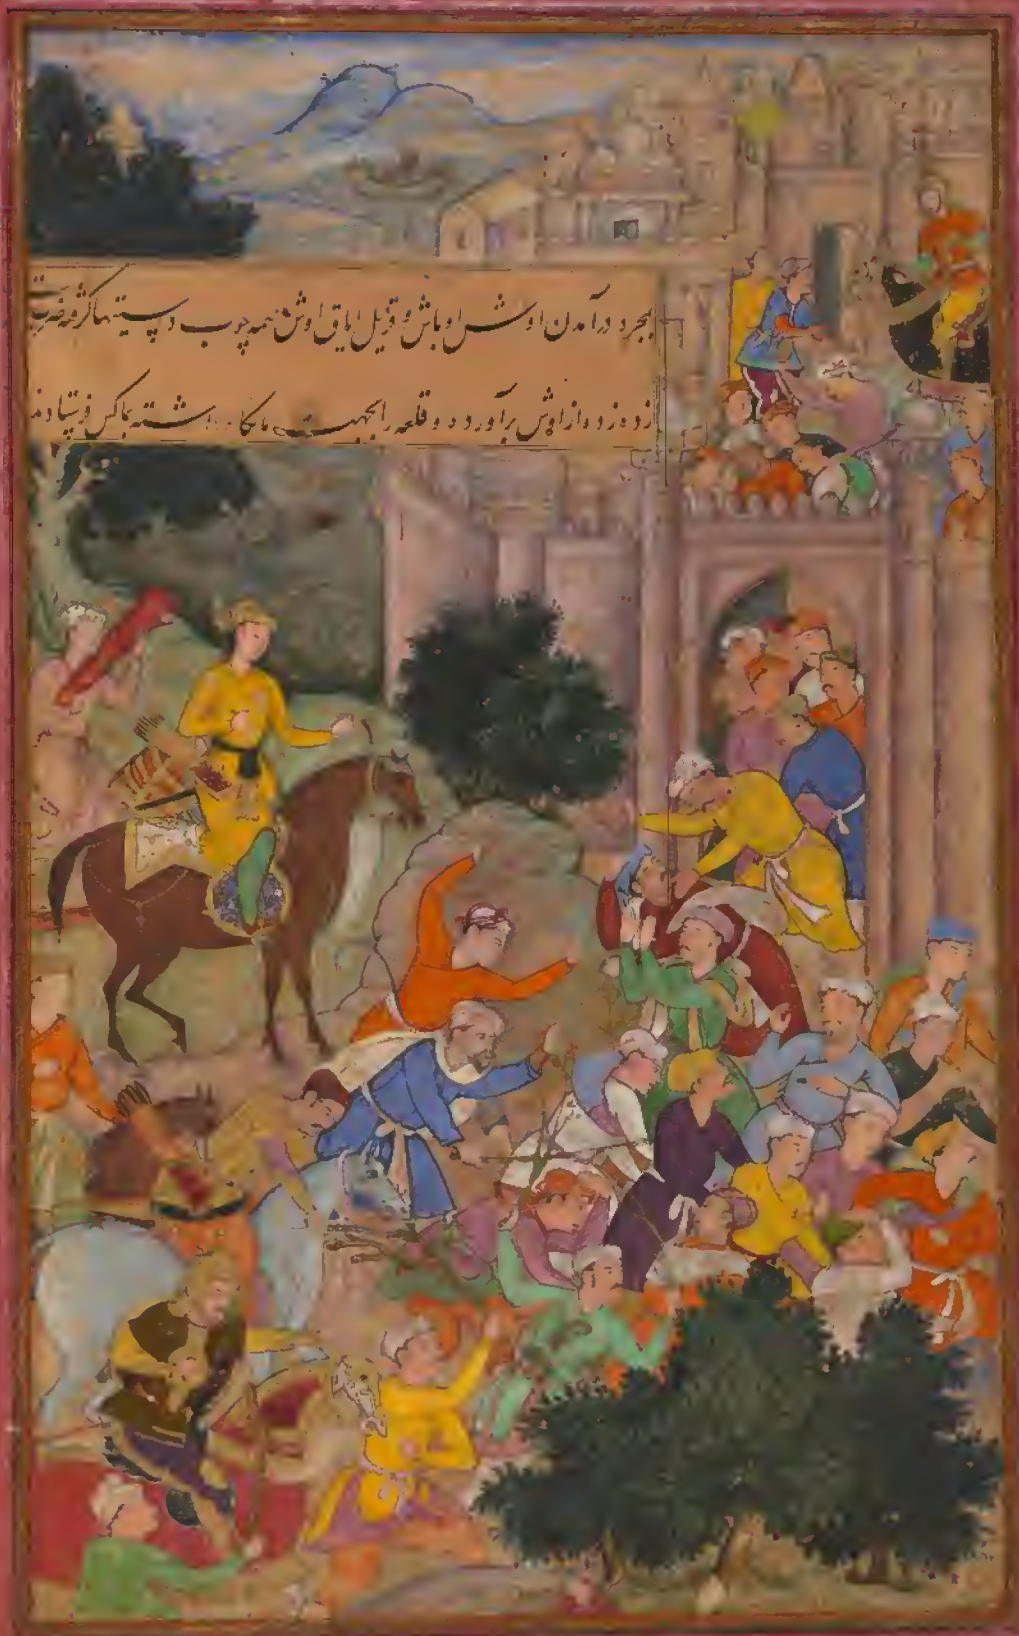 بمجرد درآمدن اوش اوباش و قزیل ایاق اوش همه چوب در دستها گرفته ضرب
زده زده از اوش برآورده و قلعه را بجهت ما نگاه داشته بما کس فرستادند